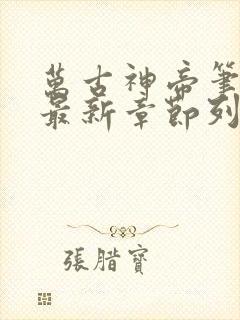 萬古神帝筆
最新章節列
張腊寶